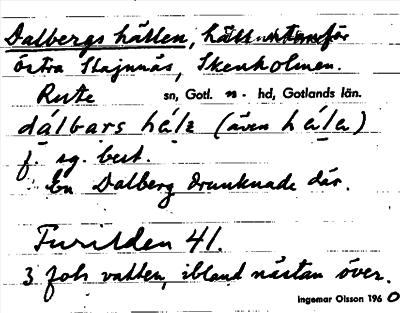 Dalbergs hällen, häll utanför
östra Stajnnäs, Skenholmen.
Rute sn, Gotl. n. hd, Gotlands län.
dálbars hálɛ (även hála)
f. sg. best.
En Dalberg drunknade där.
Furilden 41.
3 fots vatten, ibland nästan över.
Ingemar Olsson 1960